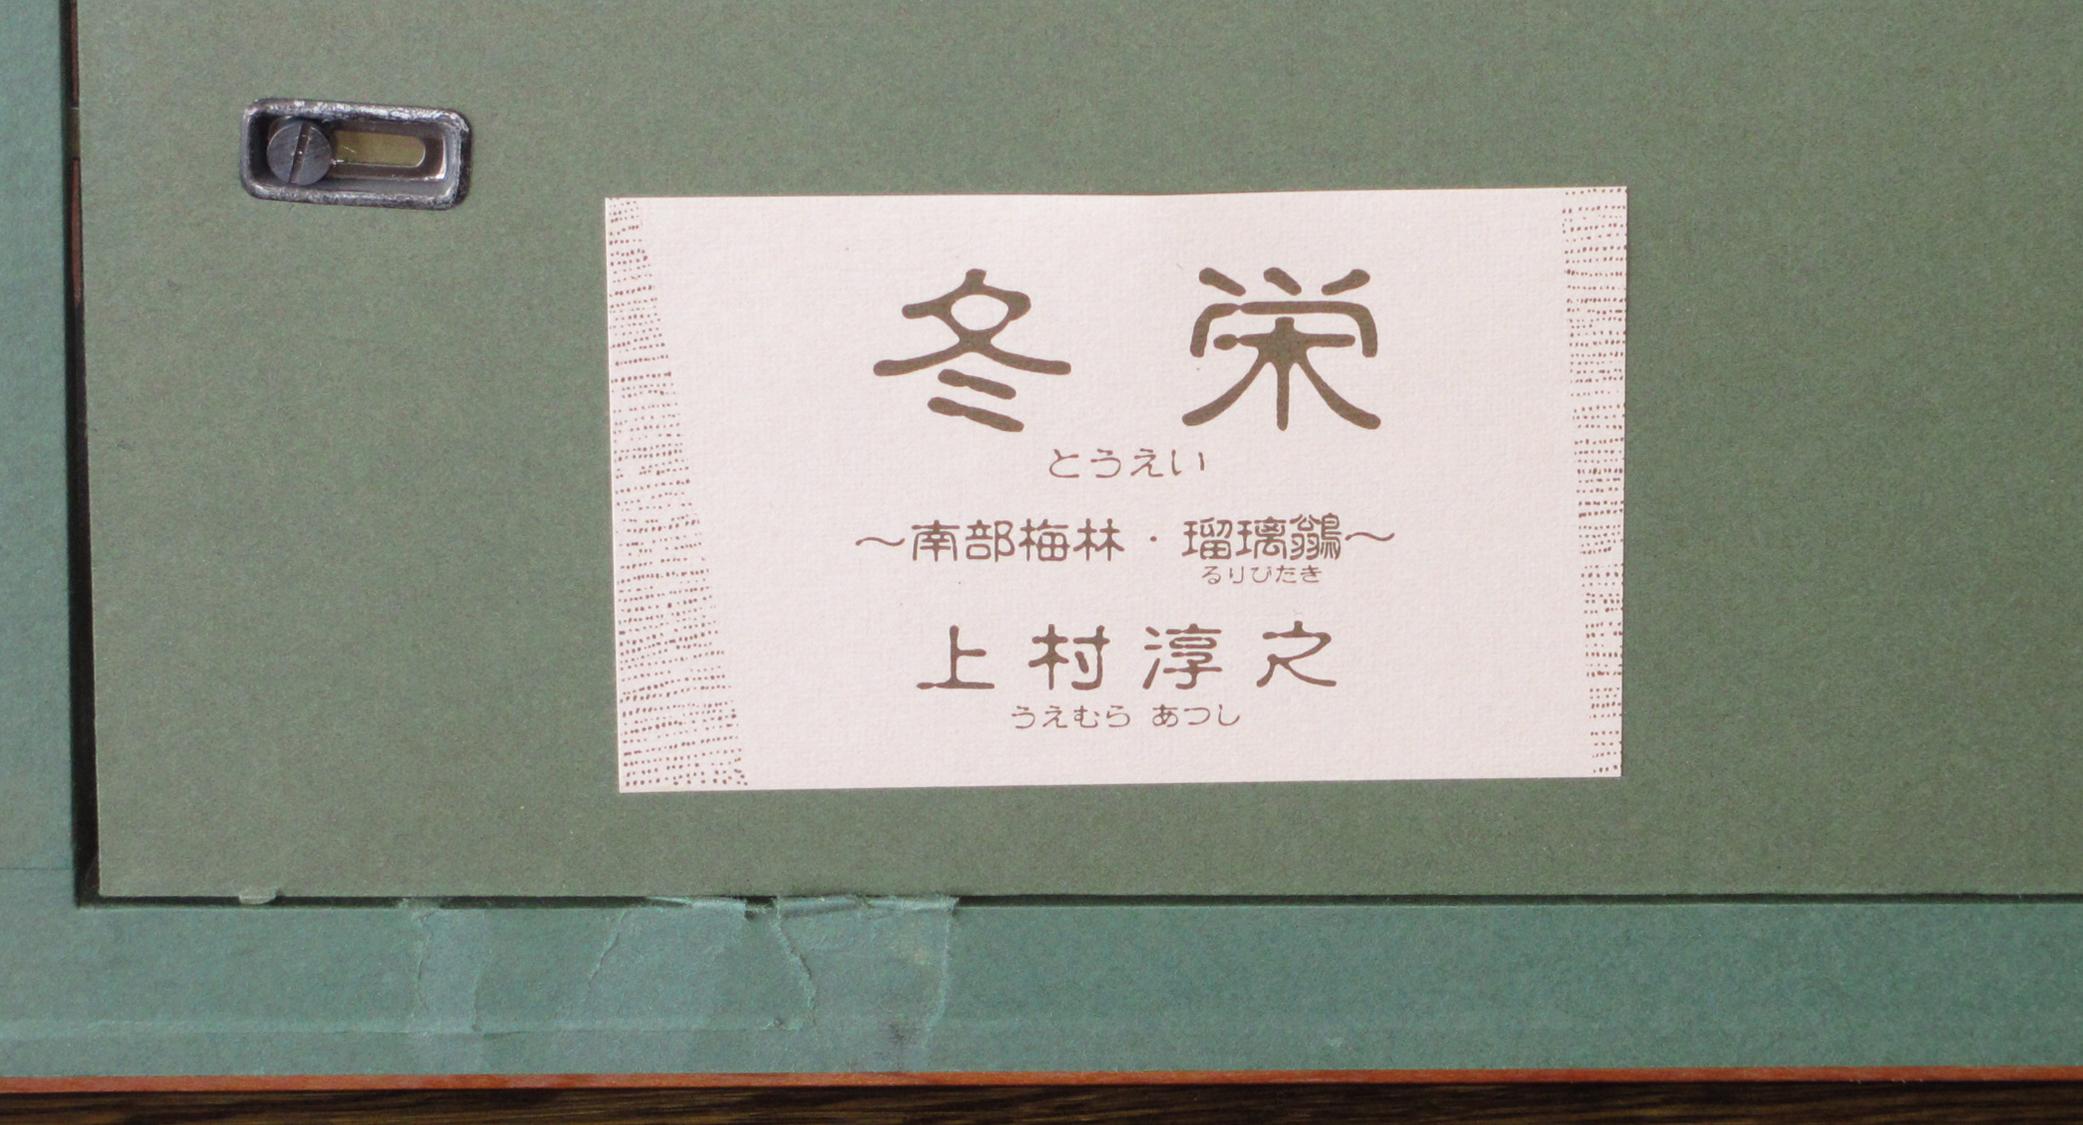 冬 栄
とうえい
〜南部梅林・瑠璃鶲〜
るりびたき
上村淳之
うえむら あつし